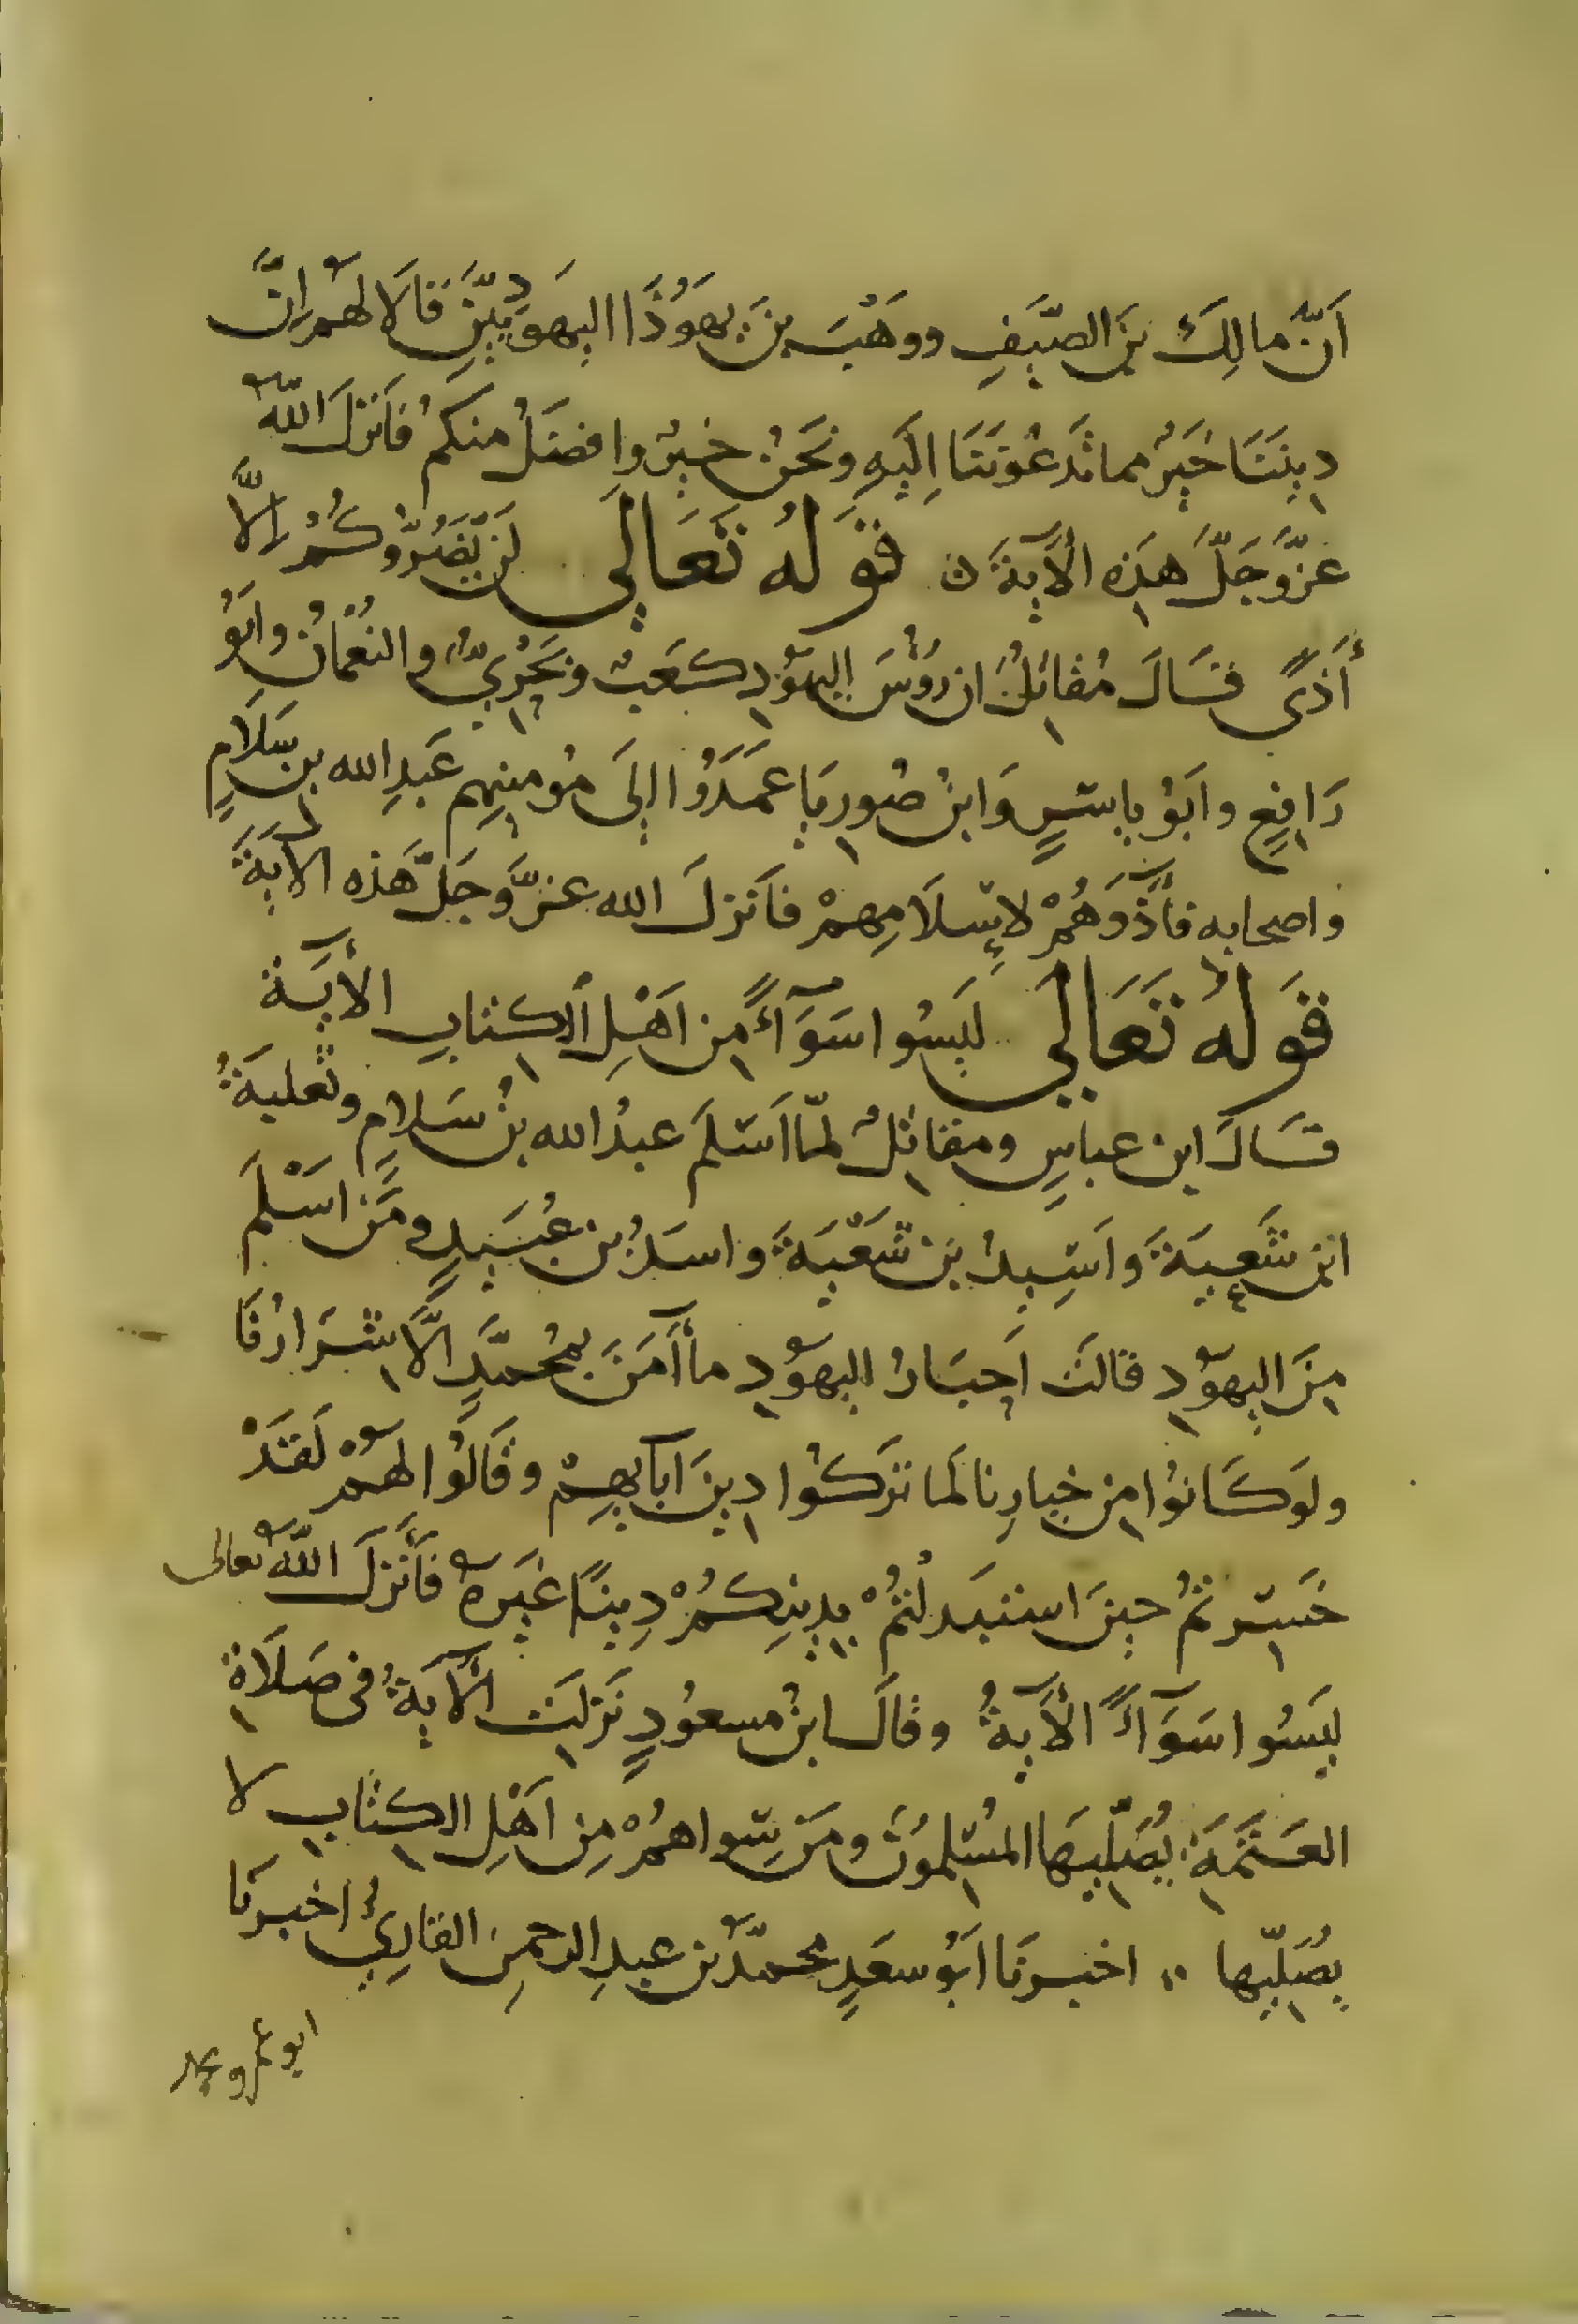 اَنّ مالِكَ بنَ الصَّيَفِ ووهَبَ بنَ يهَوُذَا اليهَودِيّيَنِ قالَا لهَمُ اِنَّ
دِينَنَا خَيَرُ مما تَدعُونَنَا اِلَيَهِ ونَحَنُ خيرٌ وافضَلُ منكمُ فاَنزلَ اللّهُ
عزَّوجَلَّ هَذِه الْأَيةَ ن قَولُهُ تَعَالَي لَنَ يَّضُرُّوكُمُ اِلَّا
أَذًي قَالَ مُقاتلُ ان رؤُسَ اليهَوُدِ كعَبٌ وبَحُرِيٌّ والنعُمَانُ واَبوُ
رَافِعٍ وابَوُ ياسرٍ وَابنُ صُورِيَا عمَدَوُا اِلَى مُومنِهِم عَبدِ الله بنِ سَلَامٍ
واصحابِه فأذَوَهُمْ لاِسلَامِهِمْ فاَنَزلَ الله عزّوجَلَّ هَذه الاَيَةَ
قَولُهُ تَعَالَي لَيَسُوا سَوَآءً مِن اَهْلِ الكتابِ الأيَة
قَالَ ابن عباسٍ ومقاتلُ لمّا اَسَلَمَ عبدُ الله بنُ سَلَامٍ وثعلبَةُ
ابن شَعيَةَ واَسِيدُ بنَ شَعَيَةَ واسَدُ بن عُبَيدٍ ومَنَ اسَلَمَ
مِنَ اليهَوُدِ قالتَ اَحبَارُ اليهَوُدِ ماأَمَنَ بمُحمّدٍ الَّا شرَارُنَا
ولَوكَانوُا مِن خيارِنا لَما تَركَوُا دِينَ ابآئِهِمُ وقَالَوُا لهَمُ لَقَدْ
خَسرتمُ حِينَ استبَدلُتمُ بِدِينِكُمْ دِينًا غَيَرَهُ فأَنَزلَ اللّهُ تعالى
ليَسُوا سَوَآءً الْأَيةُ وقالَ ابنُ مسعوُدٍ نَزلَت الْأيَةُ فى صَلَاةِ
العَتَمَةِ يُصَلّيِهَا المُسلِموُنَ ومَنَ سِواهمُ مِن اَهْلِ الكتابِ لا
يُصَلِّيها ،، اخبرنَا ابَوُ سعَدٍ محمّدُ بن عبدِ الرحمنِ القارِئُ اخبرنَا
ابو عمرو محمد